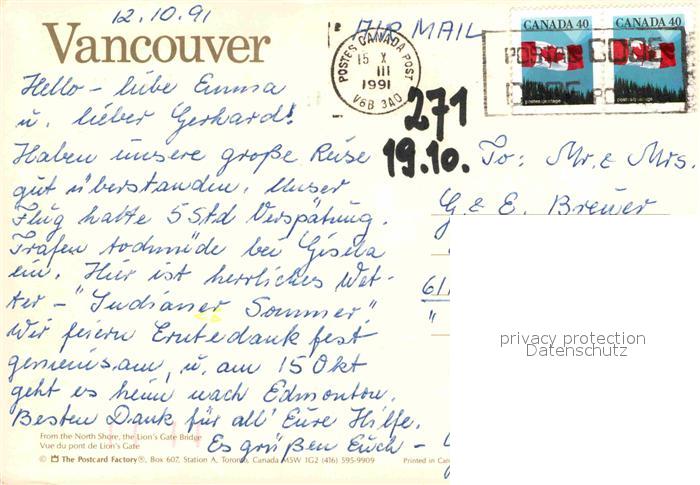 12.10.91
Vancouver
AIR MAIL
POSTES CANADA POST
15 X
III
1991
V6B 3A0
CANADA 40
CANADA 40
POSTAL CODE
postes/postage
271
19.10.
Hello - liebe Emma
u. lieber Gerhard!
Haben unsere große Reise
gut überstanden. Unser
Flug hatte 5 Std Verspätung.
Trafen todmüde bei Gisela
ein. Hier ist herrliches Wet-
ter - "Indianer Sommer"
Wir feiern Erntedankfest
gemeinsam u. am 15 Okt
geht es heim nach Edmonton.
Besten Dank für all' Eure Hilfe.
Es grüßen Euch -
To: Mr. & Mrs.
G. & E. Breuer
61
"
privacy protection
Datenschutz
From the North Shore, the Lion's Gate Bridge
Vue du pont de Lion's Gate
© The Postcard Factory®, Box 607, Station A, Toronto, Canada M5W 1G2 (416) 595-9909
Printed in Can